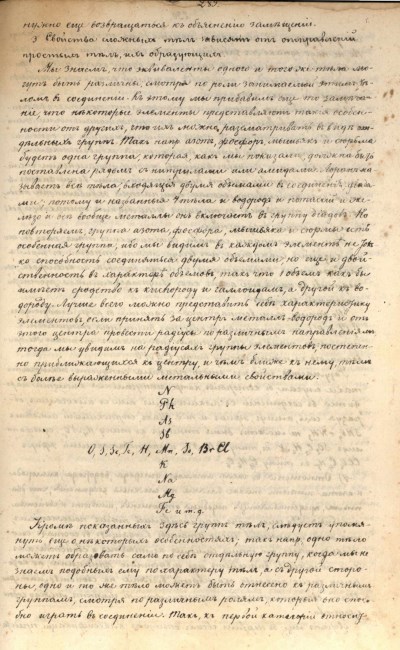 289.
нужно еще возвращаться къ объясненію замѣщеній.
3 Свойства сложныхъ тѣлъ зависятъ отъ
простыхъ тѣлъ, ихъ образующихъ
Мы знаемъ, что эквиваленты одного и того же тѣла мо-
гутъ быть различны, смотря по роли занимаемой этимъ тѣ-
ломъ въ соединеніи. Къ этому мы прибавимъ еще то замѣча-
ніе, что нѣкоторые элементы представляютъ такія особен-
ности отъ другихъ, что ихъ можно, разсматривать въ видѣ от-
дѣльныхъ группъ. Такъ напр азотъ, фосфоръ, мышьякъ и сюрьма
будутъ одна группа, которая, какъ мы показали, должна быть
поставлена рядомъ съ нитрилами или амидами.
всѣ тѣла, входящія двумя объемами въ соединеніе,
ми; потому и названныя тѣла и водородъ и потассій и же-
лѣзо и всѣ вообще металлы онъ включаетъ въ группу Но
повторяемъ, группа азота, фосфора, мышьяка и сюрьмы есть
особенная группа, ибо мы видимъ въ каждомъ элементѣ не толь-
ко способность соединяться двумя объемами; но еще и двой-
ственность въ характерѣ объемовъ, такъ что 1 объемъ какъ бы
имѣетъ сродство къ кислороду и галлоидамъ, а другой къ во-
дороду. Лучше всего можно представить себѣ характеристику
элементовъ, если принять за центръ металл. водородъ и отъ
этого центра провести радіусы по различнымъ направленіямъ
тогда мы увидимъ на радіусахъ группы элементовъ, постепен-
но приближающихся къ центру, и чѣмъ ближе къ нему, тѣмъ
съ болѣе выраженными метальными свойствами.
N
Ph
As
Sb
O, S, Se, Te, H, Mn, Jo, Br Cl
K
Na
Mg
Fe и т.д.
Кромѣ показанныхъ здѣсь группъ тѣлъ, слѣдуетъ упомя-
нуть еще о нѣкоторыхъ особенностяхъ; такъ напр. одно тѣло
можетъ образовать само по себѣ отдѣльную группу, когда мы не
знаемъ подобныхъ ему по характеру тѣлъ, а съ другой сторо-
ны, одно и то же тѣло можетъ быть отнесено къ различнымъ
группамъ, смотря по различнымъ ролямъ, которыя оно спосо-
бно играть въ соединеніи. Такъ, къ первой категоріи относит-